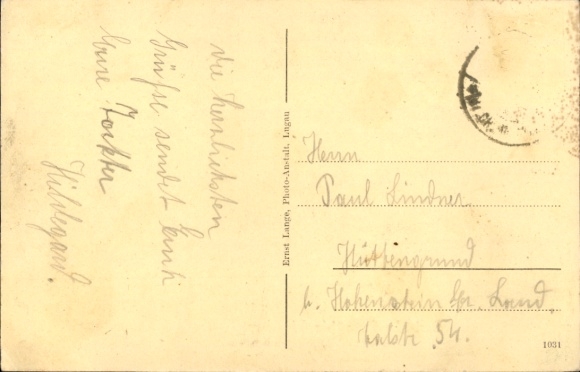 Die herzlichsten
Grüße sendet Euch
Eure Tochter
Hildegard.
Ernst Lange, Photo-Anstalt, Lugau
Herrn
Paul Lindner
Hüttengrund
b. Hohenstein Er. Land
talstr. 54.
1031